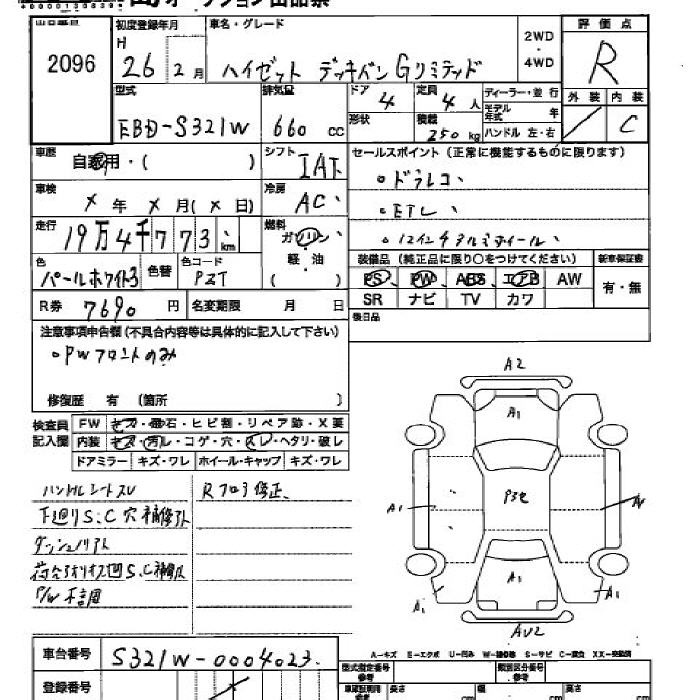 オークション出品票
出品番号
2096
初度登録年月
H
26 2 月
車名・グレード
ハイゼット デッキバン Gリミテッド
2WD
・
4WD
評価点
R
型式
EBD-S321W
排気量
660 cc
ドア
4
形状
定員
4 人
積載
250 kg
ディーラー・並 行
モデル年式 年
ハンドル 左・右
外装 内装
C
車歴
自家用・( )
シフト
IAT
セールスポイント(正常に機能するものに限ります)
。ドラレコ、
。ETC、
。12インチアルミホイール、
車検
X 年 X 月(X 日)
冷房
AC、
走行
19万4千773、km
燃料
ガソリン
軽・油
( )
色
パールホワイト3
色替
色コード
PZT
装備品(純正品に限り○をつけてください)
新車保証書
PS PW ABS エアB AW
SR ナビ TV カワ
有・無
R券 7690 円
名変期限 月 日
後日品
注意事項申告欄(不具合内容等は具体的に記入して下さい)
。PWフロントのみ
修復歴 有 (箇所 )
検査員記入欄
FW キズ・飛石・ヒビ割・リペア跡・X要
内装 キズ・汚レ・コゲ・穴・スレ・ヘタリ・破レ
ドアミラー キズ・ワレ ホイール・キャップ キズ・ワレ
ハンドルシートスレ
下廻りS、C穴補修跡
P/W不調
Rフロア修正、
A2
A1
P3e
A1
A1
A1
A1
A1
AU2
A-キズ E-エクボ U-凹み W-補修跡 S-サビ C-腐食 XX-交換済
車台番号 S321W-0004023
登録番号
型式指定番号
類別区分番号
長さ cm 幅 cm 高さ cm